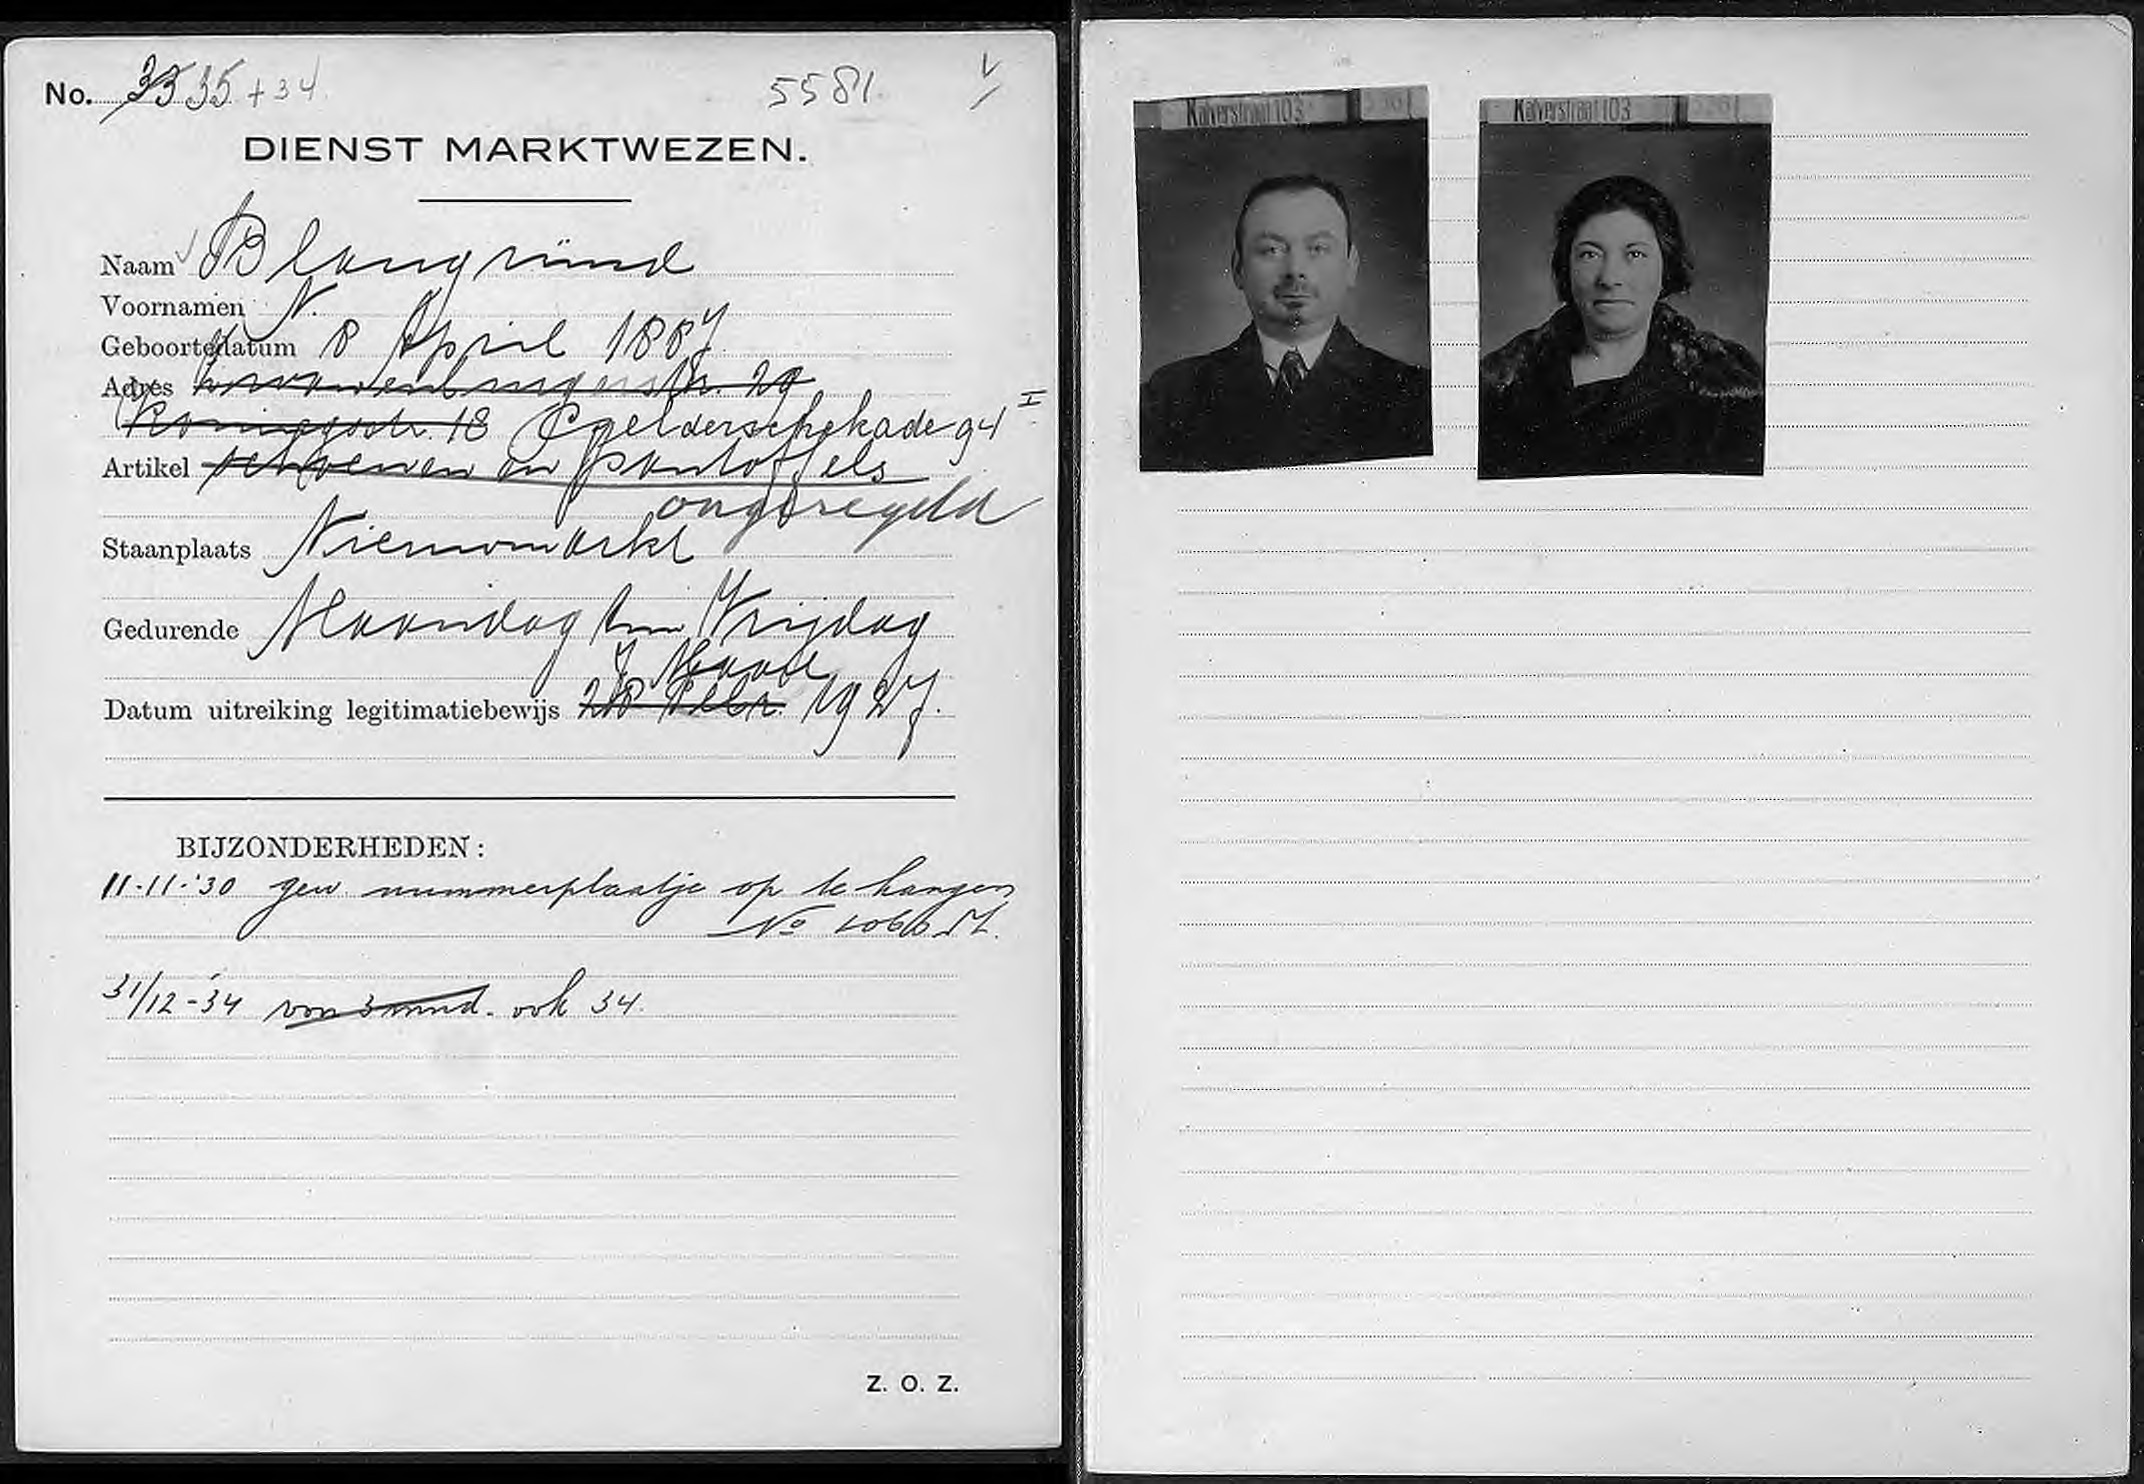 No. 33 35 + 34 5581
DIENST MARKTWEZEN.
Naam Blangründ
Voornamen N.
Geboortedatum 8 April 1887
Adres 29
Koningsstr. 18 Gelderschekade 94 I
Artikel schoenen en pantoffels
ongeregeld
Staanplaats Nieuwmarkt
Gedurende Maandag t/m Vrijdag
7 Maart
Datum uitreiking legitimatiebewijs 28 Febr. 1927.
BIJZONDERHEDEN:
11-11-'30 gew. nummerplaatje op te hangen
No 1066
31/12-'34 voor 3 mnd. ook 34.
Z. O. Z.
Kalverstraat 103
Kalverstraat 103